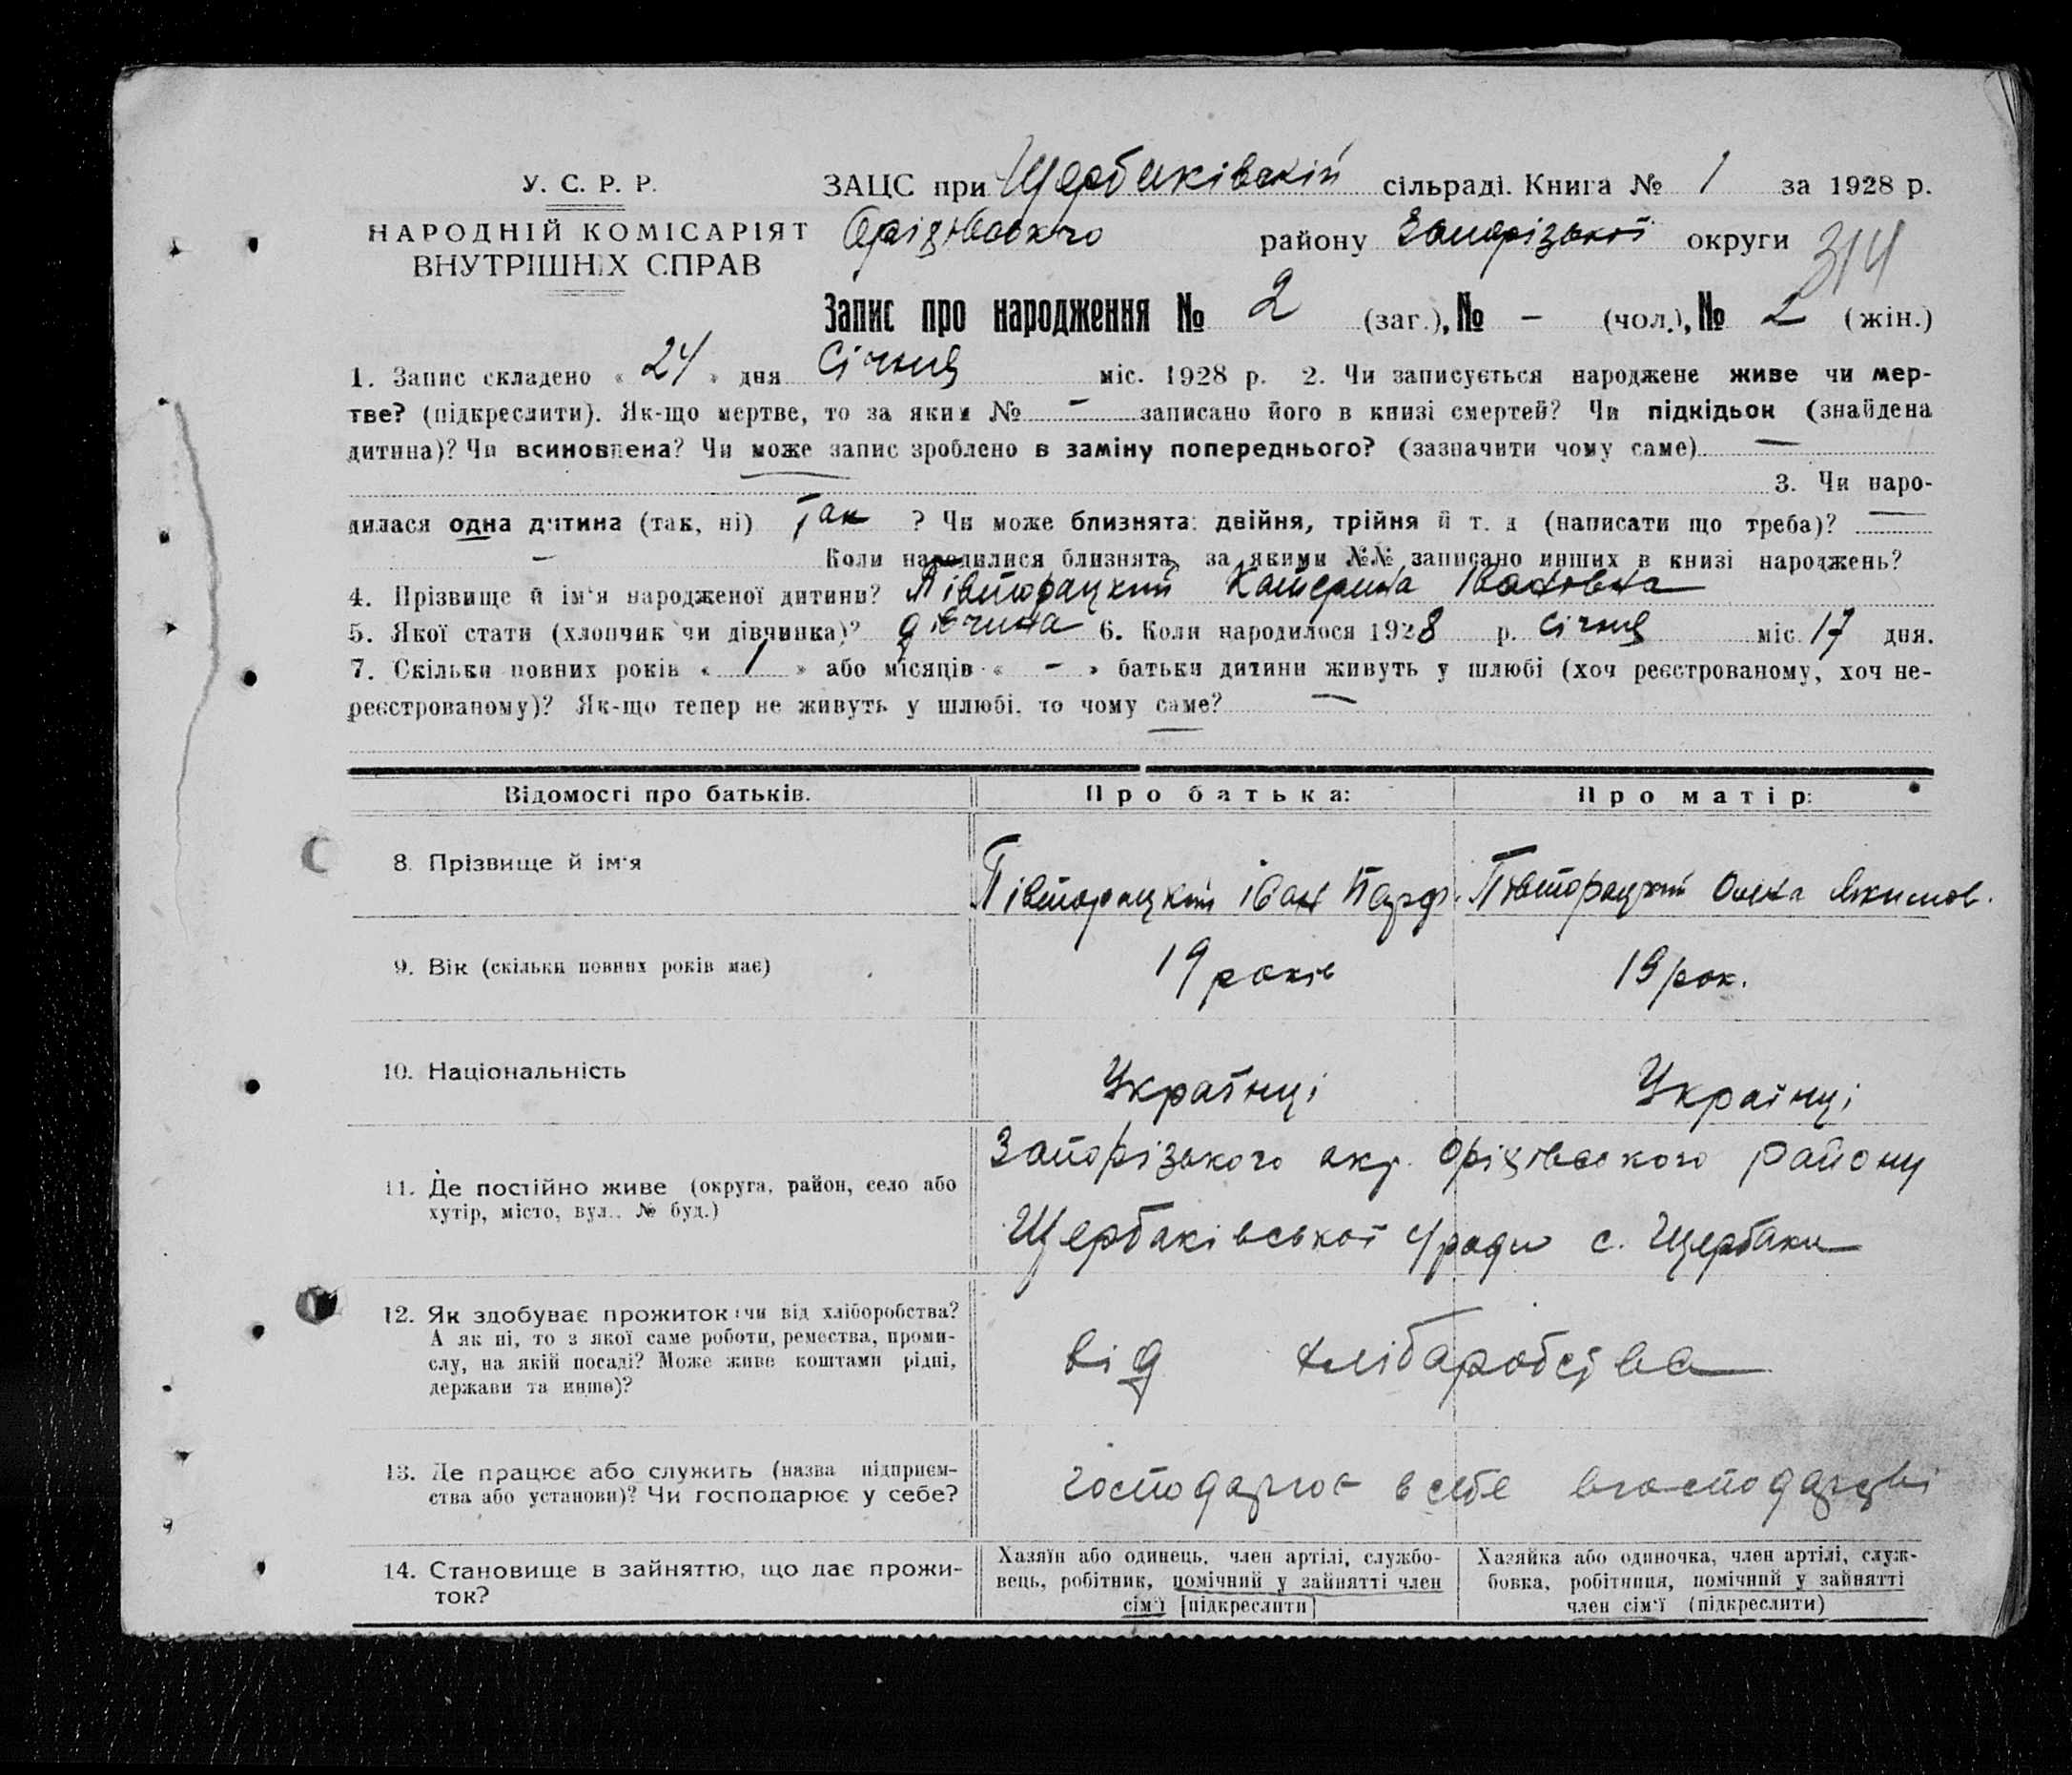 У. С. Р. Р.
НАРОДНІЙ КОМІСАРІЯТ
ВНУТРІШНІХ СПРАВ
ЗАЦС при Щербаківській сільраді. Книга № 1 за 1928 р.
Оріхівського району Запорізької округи
314
Запис про народження № 2 (заг.), № - (чол.), № 2 (жін.)
1. Запис складено « 24 » дня Січня міс. 1928 р. 2. Чи записується народжене живе чи мер-
тве? (підкреслити). Як-що мертве, то за яким № - записано його в книзі смертей? Чи підкідьок (знайдена
дитина)? Чи всиновлена? Чи може запис зроблено в заміну попереднього? (зазначити чому саме) —
3. Чи наро-
дилася одна дитина (так, ні) Так ? Чи може близнята: двійня, трійня й т. д (написати що треба)? —
— Коли народилися близнята, за якими №№ записано инших в книзі народжень?
4. Прізвище й ім'я народженої дитини? Півторацкий Катерина Івановна
5. Якої стати (хлопчик чи дівчинка)? дівчина 6. Коли народилося 1928 р. січня міс. 17 дня.
7. Скільки повних років « 1 » або місяців « - » батьки дитини живуть у шлюбі (хоч реєстрованому, хоч не-
реєстрованому)? Як-що тепер не живуть у шлюбі, то чому саме? —
Відомості про батьків. Про батька: Про матір:
8. Прізвище й ім'я Півторацкий Іван Парф. Півторацкий Олена Якимов.
9. Вік (скільки повних років має) 19 років 19 рок.
10. Національність Українці Українці
11. Де постійно живе (округа, район, село або
хутір, місто, вул., № буд.)
Запорізького окр. Оріхівського району
Щербаківської с/ради с. Щербаки
12. Як здобуває прожиток: чи від хліборобства?
А як ні, то з якої саме роботи, ремества, проми-
слу, на якій посаді? Може живе коштами рідні,
держави та инше)?
від хліборобства
13. Де працює або служить (назва підприєм-
ства або установи)? Чи господарює у себе?
господарює в себе в господарстві
14. Становище в зайняттю, що дає прожи-
ток?
Хазяїн або одинець, член артілі, службо-
вець, робітник, помічний у зайнятті член
сім'ї [підкреслити]
Хазяйка або одиночка, член артілі, служ-
бовка, робітниця, помічний у зайнятті
член сім'ї (підкреслити)